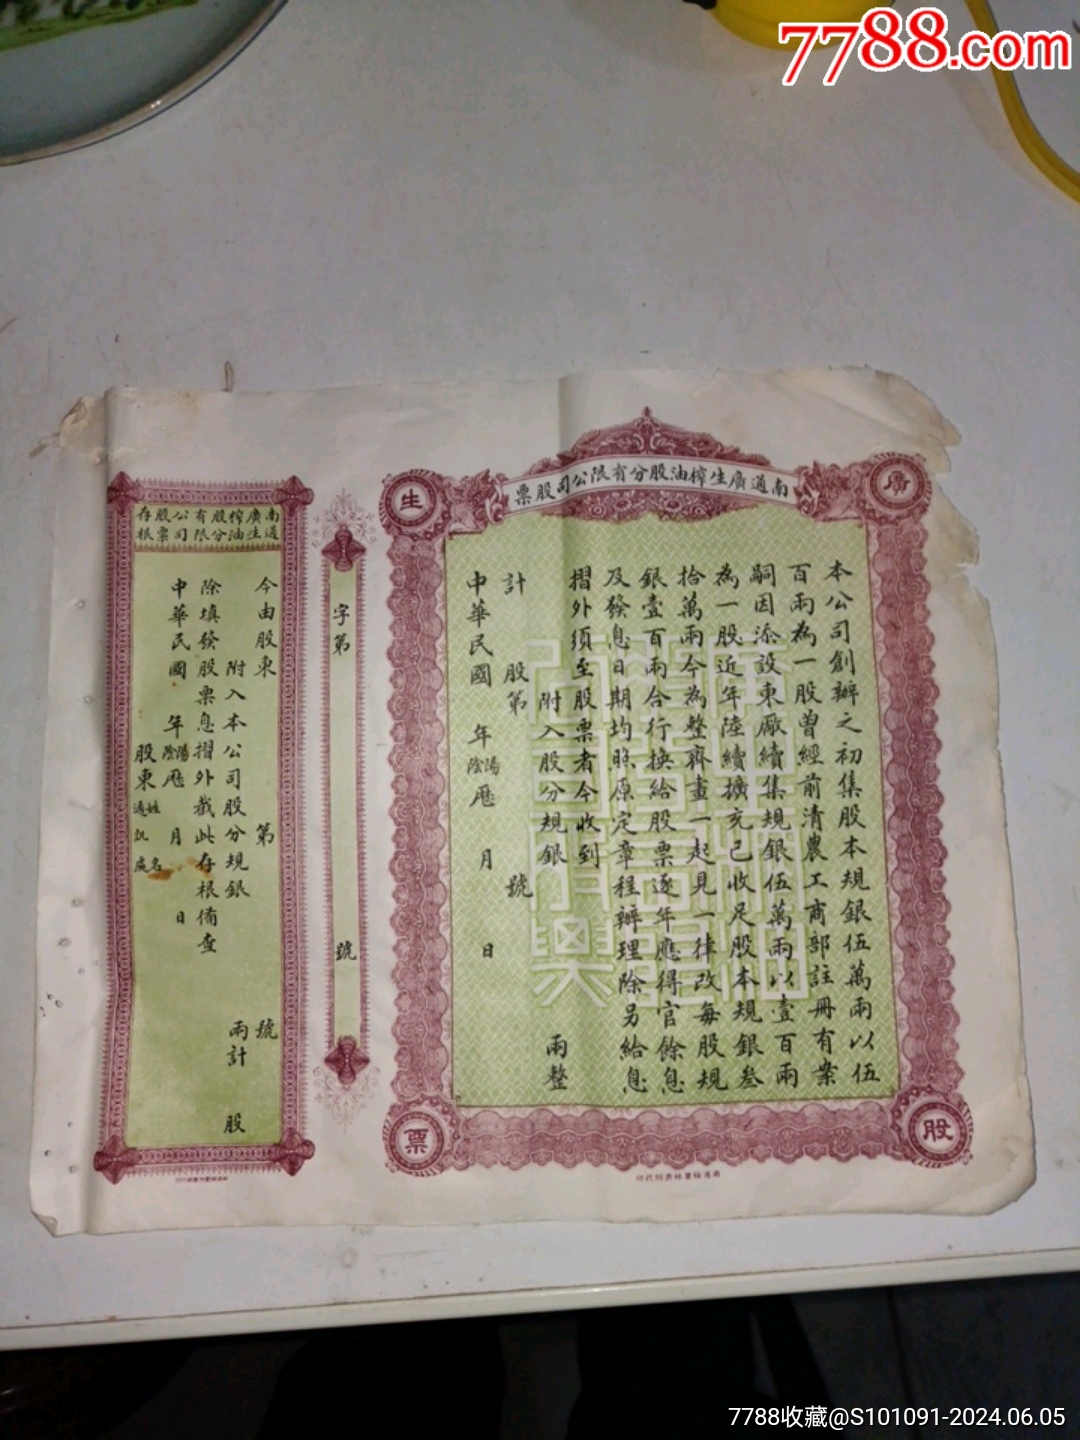 7788.com
南通廣生榨油股分有限公司股票
廣
生
股
票
本公司創辦之初集股本規銀伍萬兩以伍
百兩為一股曾經前清農工商部註冊有案
嗣因添設東廠續集規銀伍萬兩以壹百兩
為一股近年陸續擴充已收足股本規銀叁
拾萬兩今為整齊畫一起見一律改每股規
銀壹百兩合行換給股票逐年應得官餘息
及發息日期均照原定章程辦理除另給息
摺外須至股票者今收到
附入股分規銀 兩整
計 股第 號
中華民國 年陽陰歷 月 日
字第 號
南通廣生榨油股分有限公司股票存根
今由股東 第 號
附入本公司股分規銀 兩計 股
除填發股票息摺外截此存根備查
中華民國 年陽陰歷 月 日
股東姓名通訊處
7788收藏@S101091-2024.06.05